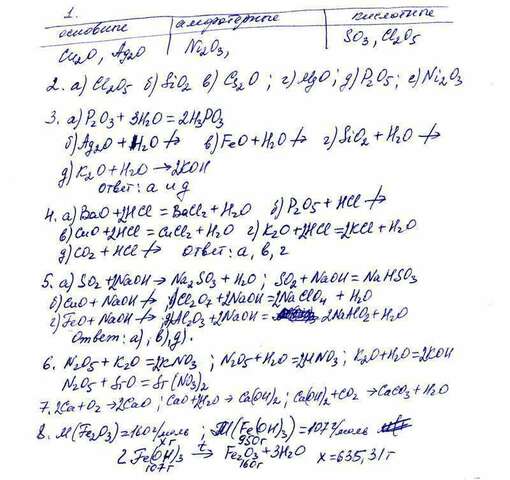 1.
основные амфотерные кислотные
Cu₂O, Ag₂O Ni₂O₃, SO₃, Cl₂O₅
2. а) Cl₂O₅ б) SiO₂ в) Cs₂O ; г) MgO ; д) P₂O₅ ; е) Ni₂O₃
3. а) P₂O₃ + 3H₂O = 2H₃PO₃
б) Ag₂O + H₂O ↛ в) FeO + H₂O ↛ г) SiO₂ + H₂O ↛
д) K₂O + H₂O → 2KOH
ответ: а и д
4. а) BaO + 2HCl = BaCl₂ + H₂O б) P₂O₅ + HCl ↛
в) CuO + 2HCl = CuCl₂ + H₂O г) K₂O + 2HCl = 2KCl + H₂O
д) CO₂ + HCl ↛ ответ: а, в, г
5. а) SO₂ + 2NaOH → Na₂SO₃ + H₂O ; SO₂ + NaOH = NaHSO₃
б) CuO + NaOH ↛ в) Cl₂O₇ + 2NaOH = 2NaClO₄ + H₂O
г) FeO + NaOH ↛ д) Al₂O₃ + 2NaOH = 2NaAlO₂ + H₂O
Ответ: а), в), д).
6. N₂O₅ + K₂O = 2KNO₃ ; N₂O₅ + H₂O = 2HNO₃ ; K₂O + H₂O = 2KOH
N₂O₅ + SrO = Sr(NO₃)₂
7. 2Ca + O₂ → 2CaO ; CaO + H₂O → Ca(OH)₂ ; Ca(OH)₂ + CO₂ → CaCO₃ + H₂O
8. M(Fe₂O₃) = 160 г/моль ; M(Fe(OH)₃) = 107 г/моль
xг 950г
2Fe(OH)₃ t→ Fe₂O₃ + 3H₂O x = 635,31 г
107г 160г